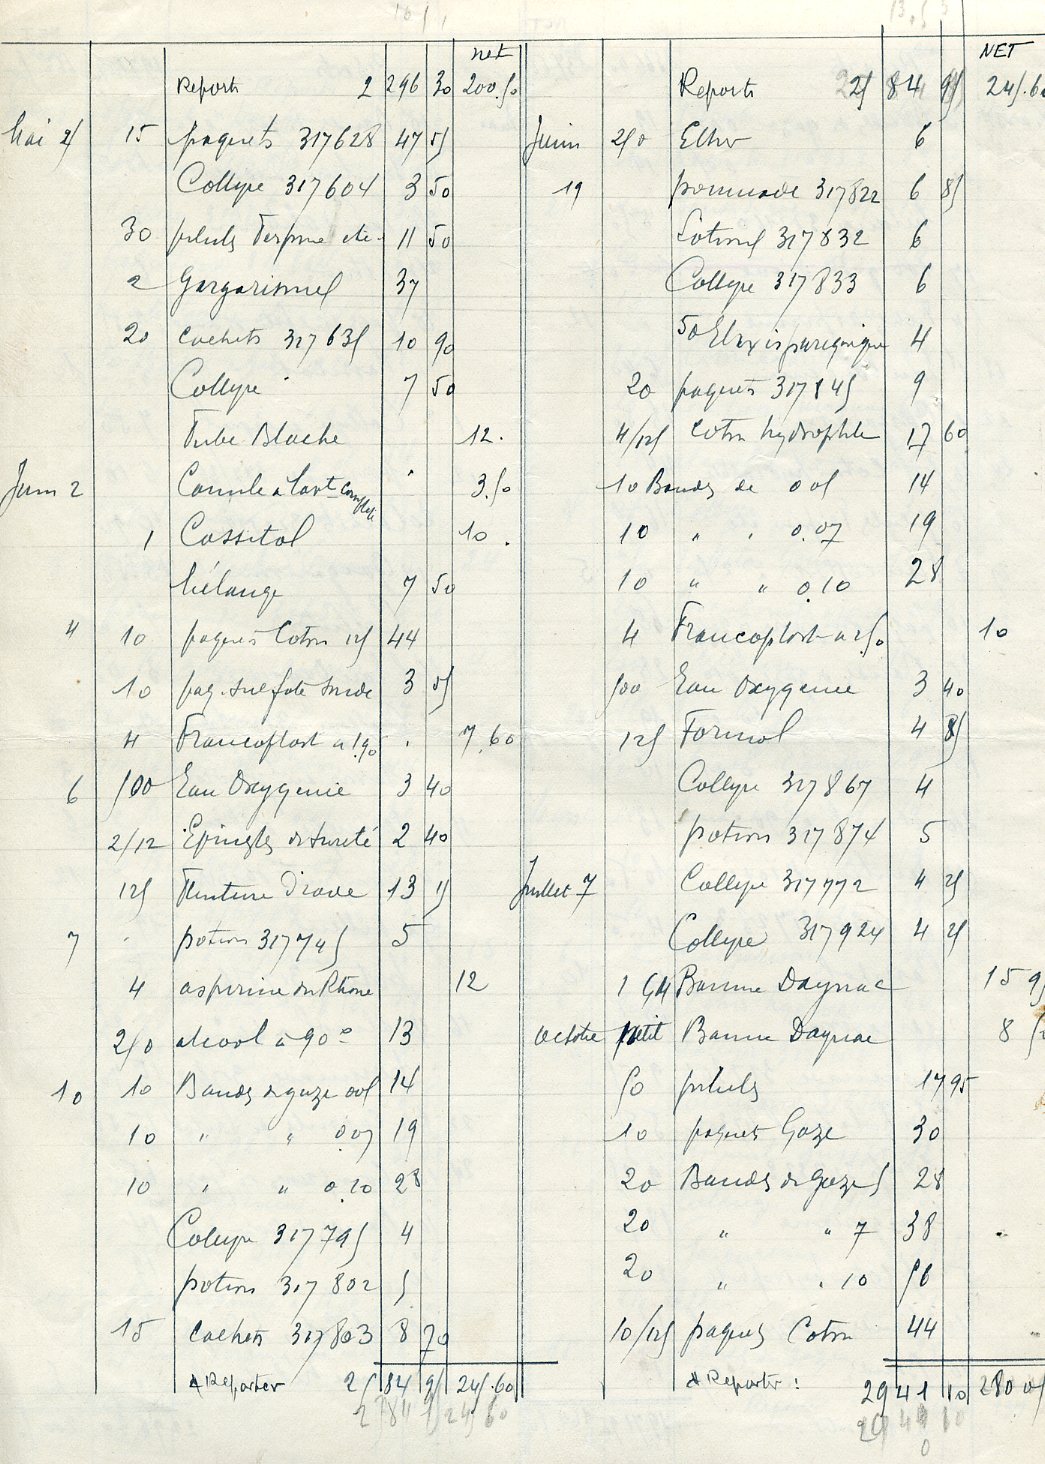 net
Reports 2 296 30 200.50
Mai 25 15 paquets 317628 47 55
Collyre 317604 3 50
30 pilules Terpine 11 50
2 Gargarismes 37
20 cachets 317635 10 90
Collyre 7 50
Tube Blache 12.
Juin 2 Canule à lavt complète 3.50
1 Cassitol 10.
Mélange 7 50
4 10 paquets Coton 125 44
10 paq. sulfate soude 3 55
4 Francoplast a 1.90 7.60
6 500 Eau Oxygenée 3 40
2/12 Epingles de sureté 2 40
125 Teinture d'iode 13 15
7 potion 317745 5
4 aspirine du Rhone 12
250 alcool à 90° 13
10 10 Bandes de gaze 005 14
10 " " 0.07 19
10 " " 0.10 28
Collyre 317795 4
potion 317802 5
15 cachets 317803 8 70
A Reporter 25 84 95 245.60
NET
Reports 25 84 95 245.60
Juin 250 Ether 6
19 pommade 317822 6 85
Lotion 317832 6
Collyre 317833 6
50 Elixir paregorique 4
20 paquets 317845 9
4/125 Coton hydrophile 17 60
10 Bandes de 005 14
10 " " 0.07 19
10 " " 0.10 28
4 Francoplast a 2.50 10
500 Eau Oxygenée 3 40
125 Formol 4 85
Collyre 317867 4
potion 317874 5
Juillet 7 Collyre 317772 4 25
Collyre 317924 4 25
1 Gd Baume Daynac 15 95
octobre petit Baume Daynac 8
50 pilules 17 95
10 paquets Gaze 30
20 Bandes de Gaze 5 28
20 " " 7 38
20 " " 10 56
10/125 paquets Coton 44
A Reporter : 29 41 10 280 05